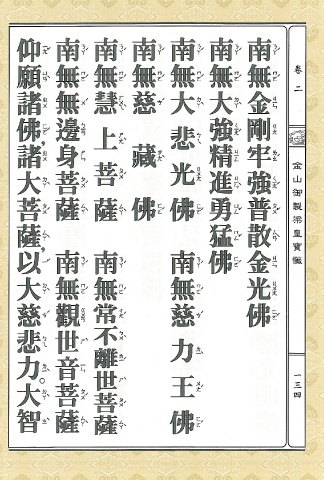 卷二
金山御製梁皇寶懺
一三四
南無金剛牢強普散金光佛
南無大強精進勇猛佛
南無大悲光佛　南無慈力王佛
南無慈藏佛
南無慧上菩薩　南無常不離世菩薩
南無無邊身菩薩　南無觀世音菩薩
仰願諸佛,諸大菩薩,以大慈悲力。大智